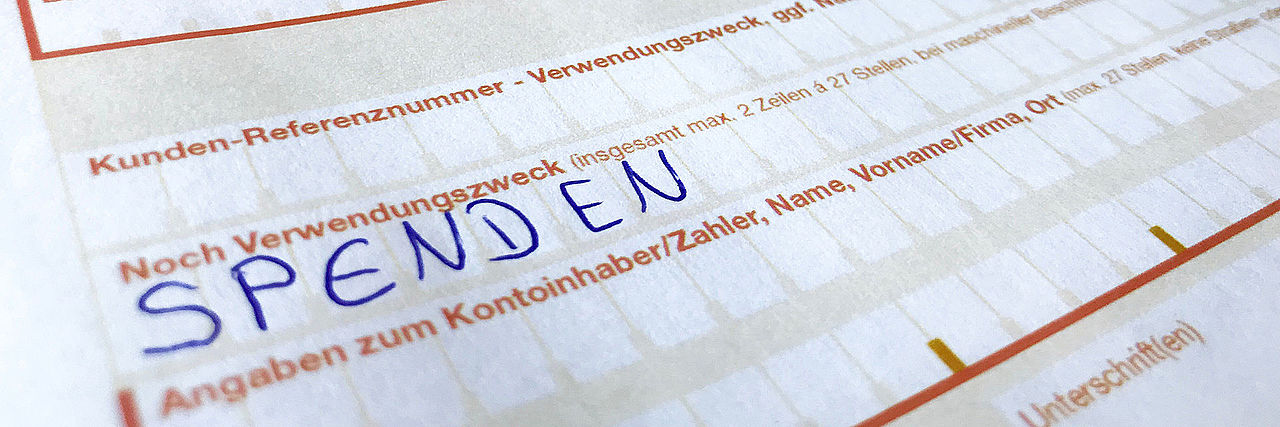 Kunden-Referenznummer - Verwendungszweck, ggf.
Noch Verwendungszweck (insgesamt max. 2 Zeilen á 27 Stellen, bei maschineller
SPENDEN
Angaben zum Kontoinhaber/Zahler, Name, Vorname/Firma, Ort (max. 27 Stellen, keine Straßen-
Unterschrift(en)